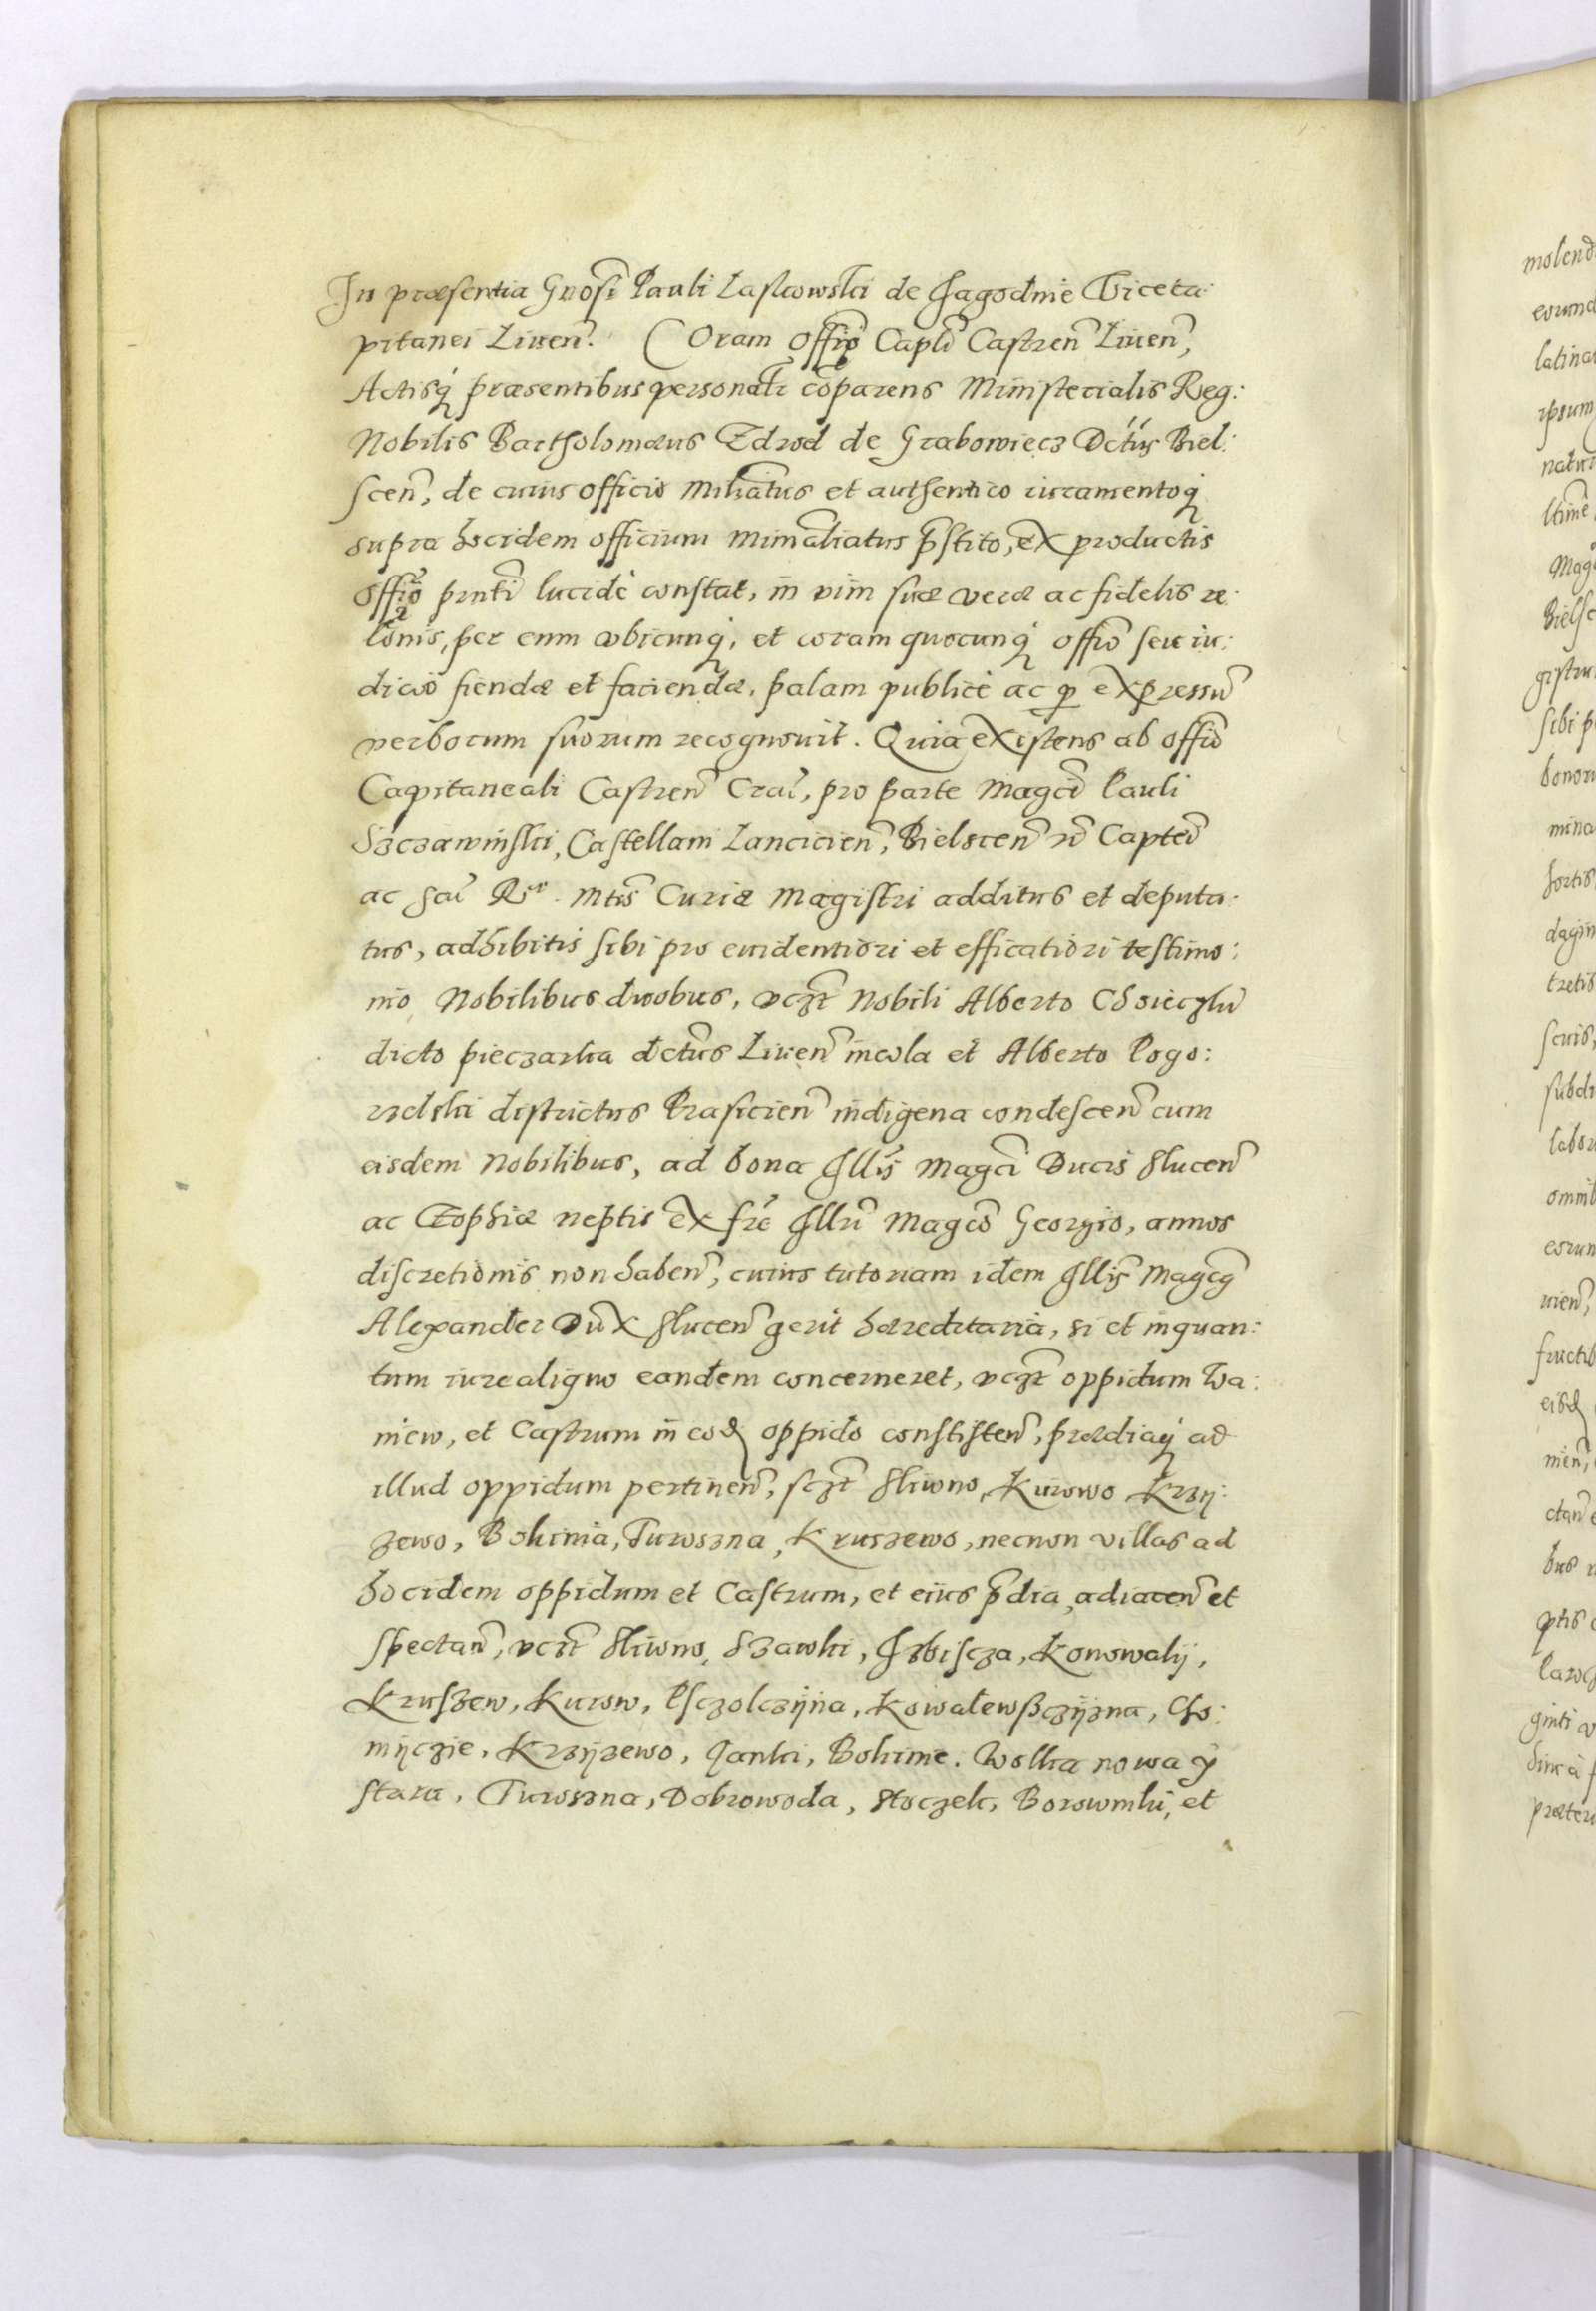 In præsentia Gnosi Pauli Laskowski de Jagodnie Viceca:
pitanei Liven. Coram Offio Capli Castren Liven,
Actisq præsentibus personalr comparens Ministerialis Reg:
Nobilis Bartholomæus Zdrod de Grabowiecz Dctus Biel:
scen, de cuius officio Mnliatus et authentico iuramentoq
supra hocidem officium Minrialiatus pstito, ex productis
Offio pnti lucide constat, in vim suæ veræ ac fidelis re:
lonis, per eum ubicunq, et coram quocunq offio seu iu:
dicio fiendæ et faciendæ, palam publice ac p expressu
verborum suorum recognovit. Quia existens ab offio
Capitaneali Castren Cral, pro parte Magci Pauli
Szczawinski, Castellani Lancicien, Bielscen Capitei
ac Sac Ræ. Mtis Curiæ Magistri additus et deputa:
tus, adhibitis sibi pro evidentiori et efficatiori testimo:
nio Nobilibus duobus, vczt Nobili Alberto Choieczki
dicto pieczarka dctus Liven incola et Alberto Pogo:
rzelski districtus Prasicien indigena condescen cum
eisdem Nobilibus, ad bona Illis Magci Ducis Slucen
ac Zophiæ neptis ex fre Illri Magco Georgio, annos
discretionis non haben, cuius tutoriam idem Illis Magcq
Alexander Dux Slucen gerit hæreditaria, si et inquan:
tum iure aliquo eandem concerneret, vczt oppidum Wa:
niew, et Castrum in eod oppido constisten, prædiaq ad
illud oppidum pertinen, sczt Sliwno, Kurowo Krzy:
zewo, Bokinia, Turoszna, Kruszewo, necnon villas ad
hocidem oppidum et Castrum, et eius pdia adiacen et
spectan, vczt Sliwno, Szawki, Izbiscza, Konowaly,
Kruszew, Kurow, Psczolczyna, Kowalewsczyzna, Cho:
myczie, Krzyzewo, Janki, Bokinie. Wolka nowa y
stara, Turoszna, Dobrowoda, Stoczek, Borowniki, et
molend
eorund
latina
ipsum
natur
ltime
Mag
Bielsc
gistr
sibi p
bonor
mina
hortis
dagin
tretis
scuis,
subdi
labor
omnib
eorun
nien,
fructib
eisd
nien,
ctan
bus
ptis
ginti
præter